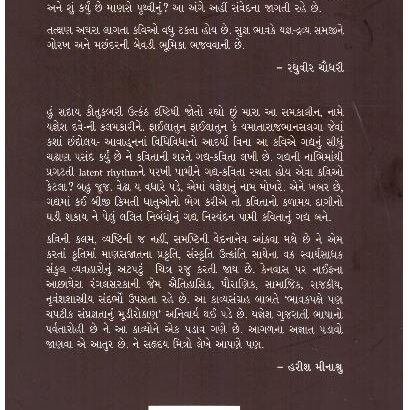 અને શું કર્યું છે માણસે પૃથ્વીનું? આ અંગે અહીં સંવેદના જાગતી રહે છે.
તત્ક્ષણ અઘરા લાગતા કવિઓ વધુ ટકતા હોય છે. સુજ્ઞ ભાવકે યજ્ઞ-દ્રવ્ય સમજીને
ગોરખ અને મછંદરની બેવડી ભૂમિકા ભજવવાની છે.
– રઘુવીર ચૌધરી
હું સદાય કૌતુકભરી ઉત્કંઠ દૃષ્ટિથી જોતો રહ્યો છું મારા આ સમકાલીન, નામે
યજ્ઞેશ દવેની કલમકારીને. ફાઈલાતુન ફાઈલાતુન કે યમાતારાજભાનસલગા જેવાં
કશાં છંદોલય- આવાહનનાં વિધિવિધાનો આદર્યા વિના આ કવિએ ગદ્યનું સીધું
ચઢાણ પસંદ કર્યું છે ને કવિતાની શરતે ગદ્ય-કવિતા લખી છે. ગદ્યની નાભિમાંથી
પ્રગટતી latent rhythmને પરખી પામીને ગદ્ય-કવિતા રચતા હોય એવા કવિઓ
કેટલા? બહુ જૂજ. વેઢા ય વધારે પડે. એમાં યજ્ઞેશનું નામ મોખરે. એને ખબર છે,
ગદ્યમાં કઈ બીજી કિંમતી ધાતુઓનો ભેગ કરીએ તો કવિતાનો કળામય દાગીનો
ઘડી શકાય ને પેલું લલિત નિબંધોનું ગદ્ય નિસ્યંદન પામી કવિતાનું ગદ્ય બને.
કવિની કલમ, વ્યષ્ટિની જ નહીં, સમષ્ટિની વેદનાનેય આંકવા મથે છે ને એમ
કરતાં કૃતિમાં માણસજાતના પ્રકૃતિ, સંસ્કૃતિ ઉત્ક્રાંતિ સાથેના વક્ર સ્વાર્થસાધક
સંકુલ વ્યવહારોનું અટપટું ચિત્ર રજૂ કરતી જાય છે. કેનવાસ પર નાઈફના
આછાઘેરા રંગલસરકાની જેમ ઐતિહાસિક, પૌરાણિક, સામાજિક, રાજકીય,
નૃવંશશાસ્ત્રીય સંદર્ભો ઉપસતા રહે છે. આ કાવ્યસંગ્રહ બાબતે 'ભાવકપક્ષે પણ
ચપટીક સંપ્રજ્ઞતાનું મૂડીરોકાણ' અનિવાર્ય થઈ પડે છે. યજ્ઞેશ ગુજરાતી ભાષાનો
પર્વતારોહી છે ને આ કાવ્યોને એક પડાવ ગણે છે. આગળના અજ્ઞાત પડાવો
જાણવા એ આતુર છે. ને સહૃદય મિત્રો લેખે આપણે પણ.
– હરીશ મીનાશ્રુ